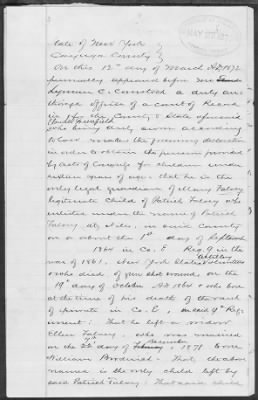 State of New York
Cayuga County
On this 12th day of March A.D. 1872
personally appeared before me
Lyman C. Comstock a duly au-
thorized officer of a Court of Record
in & for the County & State aforesaid
who being duly sworn according
to law makes the following declaration
in order to obtain the pension provided
by acts of Congress for children under
sixteen years of age: that he is the
only legal guardian of Mary Falvey
legitimate Child of Patrick Falvey who
enlisted under the name of Patrick
Falvey, at Niles, in said County
on or about the 1st day of September
1864 in Co. E Reg. 9 in the
war of 1861, New York Artillery
& who died, of gun shot wounds on the
19th day of October A.D. 1864 & who bore
at the time of his death the rank
of private in Co. E, in said 9th Reg-
iment: That he left a widow
Ellen Falvey, who was married
on the day of 1871 to one
William : That the above
named is the only child left by
said Patrick Falvey: That said child